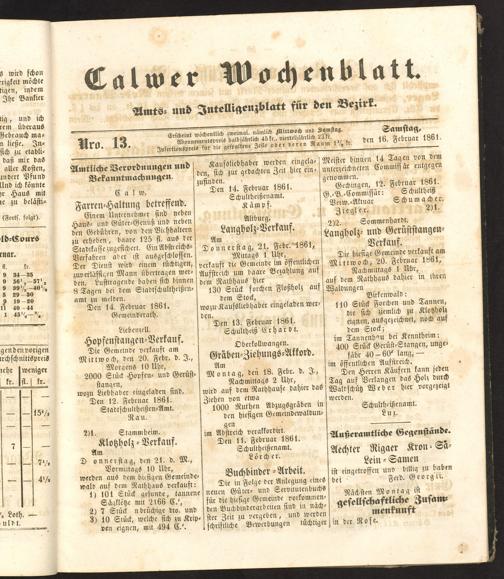 Calwer Wochenblatt.
Amts- und Intelligenzblatt für den Bezirk.
Nro. 13.
Erscheint wöchentlich zweimal, nämlich Mittwoch und Samstag.
Abonnementspreis halbjährlich 45 kr., vierteljährlich 23 kr.
Insertionspreis für die gespaltene Zeile oder deren Raum
Samstag,
den 16. Februar 1861.
Amtliche Verordnungen und
Bekanntmachungen.
Calw.
Farren-Haltung betreffend.
Einem Unternehmer sind neben
Haus- und Güter-Genuß und neben
den Gebühren, von den Viehhaltern
zu erheben, baare 125 fl. aus der
Stadtkasse zugesichert. Ein Abstreichs-
Verfahren aber ist ausgeschlossen.
Der Dienst wird einem tüchtigen,
zuverlässigen Mann übertragen wer-
den. Lusttragende haben sich binnen
8 Tagen bei dem Stadtschultheißen-
amt zu melden.
Den 14. Februar 1861.
Gemeinderath.
Liebenzell.
Hopfenstangen-Verkauf.
Die Gemeinde verkauft am
Mittwoch, den 20. Febr. d. J.,
Morgens 10 Uhr,
2000 Stück Hopfen- und Gerüst-
stangen,
wozu Liebhaber eingeladen sind.
Den 12. Februar 1861.
Stadtschultheißen-Amt.
Rau.
2)1. Stammheim.
Klotzholz-Verkauf.
Am
Donnerstag, den 21. d. M.,
Vormittags 10 Uhr,
werden aus dem hiesigen Gemeinde-
wald auf dem Rathhaus verkauft:
1) 101 Stück gesunde, tannene
Sägklötze mit 2166 C.',
2) 7 Stück
3) 10 Stück, welche sich zu
eignen, mit 494 C.'.
Kaufsliebhaber werden eingela-
den, sich zur gedachten Zeit hier ein-
zufinden.
Den 14. Februar 1861.
Schultheißenamt.
Kämpf.
Altburg.
Langholz-Verkauf.
Am
Donnerstag, 21. Febr. 1861,
Mittags 1 Uhr,
verkauft die Gemeinde im öffentlichen
Aufstreich um baare Bezahlung auf
dem Rathhaus hier
130 Stück forchen Floßholz auf
dem Stock,
wozu Kaufsliebhaber eingeladen wer-
den.
Den 13. Februar 1861.
Schultheiß Erhardt.
Oberkollwangen.
Gräben-Ziehungs-Akkord.
Am
Montag, den 18. Febr. d. J.,
Nachmittags 2 Uhr,
wird auf dem Rathhaus dahier das
Ziehen von etwa
1000 Ruthen Abzugsgräben in
den hiesigen Gemeindewaldun-
gen
im Abstreich verakkordirt.
Den 11. Februar 1861.
Schultheißenamt.
Lörcher.
Buchbinder-Arbeit.
Die in Folge der Anlegung eines
neuen Güter- und Servitutenbuchs
für die hiesige Gemeinde vorkommen-
den Buchbinderarbeiten sind in näch-
ster Zeit zu vergeben, und werden
schriftliche Bewerbungen tüchtiger
Meister binnen 14 Tagen von dem
unterzeichneten Commissär entgegen
genommen.
Gechingen, 12. Februar 1861.
G.-B.-Kommissär: Schultheiß
Verw.-Aktuar Schumacher.
Ziegler. 2)1.
2)2. Sommenhardt.
Langholz- und Gerüststangen-
Verkauf.
Die hiesige Gemeinde verkauft am
Mittwoch, 20. Februar 1861,
Nachmittags 1 Uhr,
auf dem Rathhaus dahier in ihren
Waldungen
Birkenwald:
110 Stück Forchen und Tannen,
die sich ziemlich zu Klotzholz
eignen, ausgezeichnet, noch auf
dem Stock;
im Tannenhau bei Kenntheim:
400 Stück Gerüststangen, unge-
fähr 40–60' lang,
im öffentlichen Aufstreich.
Den Herren Käufern kann jeden
Tag auf Verlangen das Holz durch
Waldschütz Weber hier vorgezeigt
werden.
Schultheißenamt.
Luz.
Außeramtliche Gegenstände.
Aechter Rigaer Kron-Sä-
Lein-Samen
ist eingetroffen und billig zu haben
bei Ferd. Georgii.
Nächsten Montag ist
gesellschaftliche Zusam-
menkunft
in der Rose.